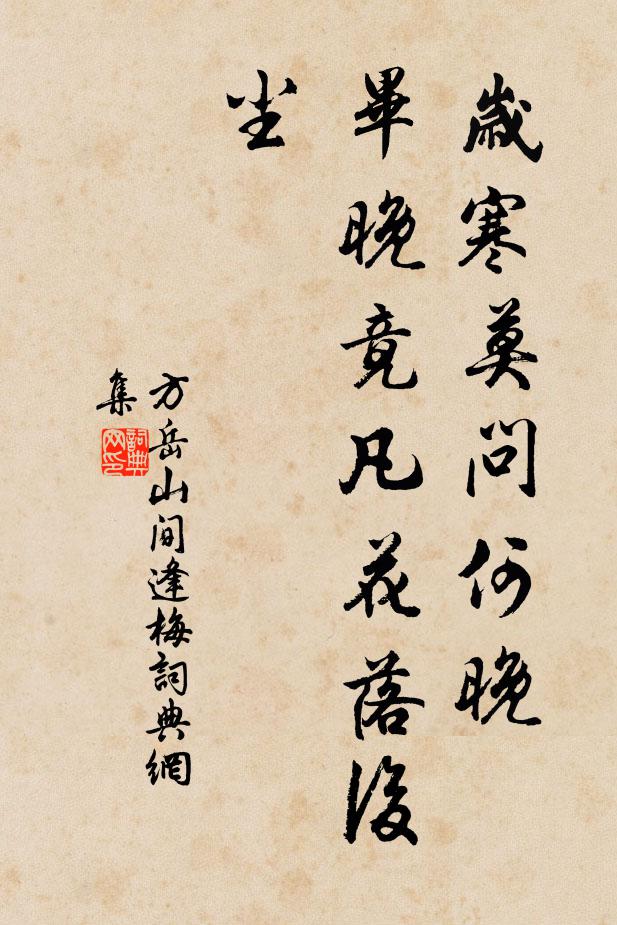 歲寒莫問何晚
畢晚竟凡花落後
坐
方岳山間逢梅詞典網
集
詞典網印